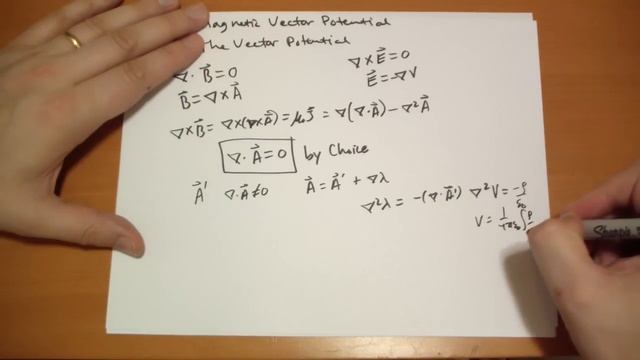 Magnetic Vector Potential
The Vector Potential
∇·B⃗=0
∇×E⃗=0
B⃗=∇×A⃗
E⃗=-∇V
∇×B⃗=∇×(∇×A⃗)=μ₀J⃗=∇(∇·A⃗)-∇²A⃗
∇·A⃗=0 by Choice
A⃗' ∇·A⃗≠0 A⃗=A⃗'+∇λ
∇²λ=-(∇·A⃗') ∇²V=-ρ/ε₀
V=1/4πε₀∫ρ
Sharpie